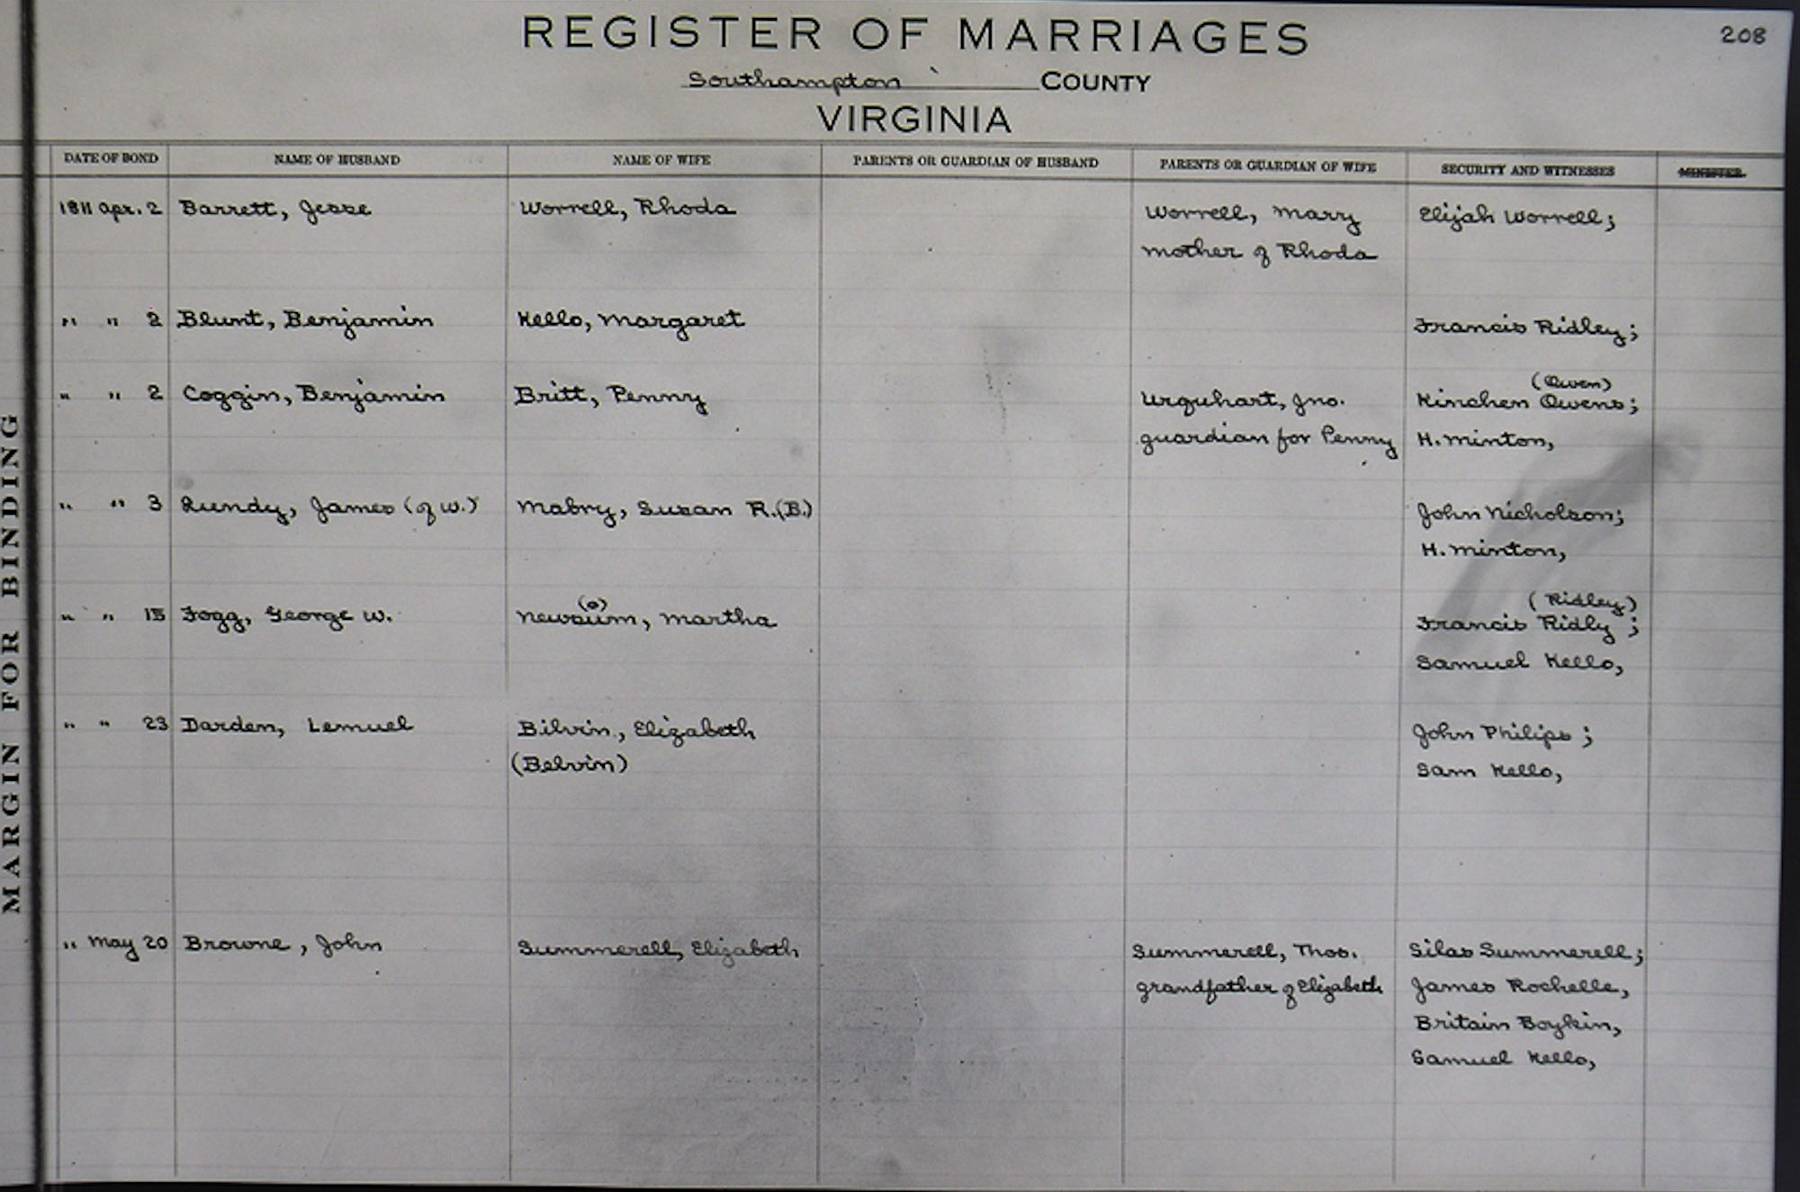 REGISTER OF MARRIAGES
208
Southampton COUNTY
VIRGINIA
DATE OF BOND NAME OF HUSBAND NAME OF WIFE PARENTS OR GUARDIAN OF HUSBAND PARENTS OR GUARDIAN OF WIFE SECURITY AND WITNESSES MINISTER
1811 Apr. 2 Barrett, Jesse Worrell, Rhoda Worrell, Mary Elijah Worrell;
mother of Rhoda
" " 2 Blunt, Benjamin Kello, Margaret Francis Ridley;
(Owen)
" " 2 Coggin, Benjamin Britt, Penny Urquhart, Jno. Kinchen Owens;
guardian for Penny H. Minton,
" " 3 Lundy, James (of W.) Mabry, Susan R.(B.) John Nicholson;
H. Minton,
(o) (Ridley)
" " 15 Fogg, George W. Newsum, Martha Francis Ridly;
Samuel Kello,
" " 23 Darden, Lemuel Bilvin, Elizabeth John Philips;
(Belvin) Sam Kello,
" May 20 Browne, John Summerell, Elizabeth Summerell, Thos. Silas Summerell;
grandfather of Elizabeth James Rochelle,
Britain Boykin,
Samuel Kello,
MARGIN FOR BINDING